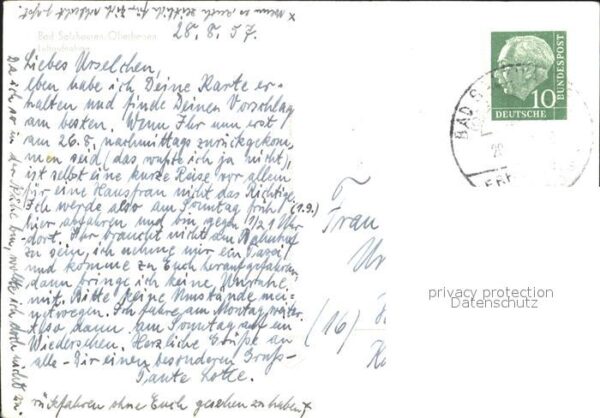 x wenn es auch zeitlich für Dich
28.8.57.
Bad Salzhausen Oberhessen
Liebes Urselchen,
eben habe ich Deine Karte er-
halten und finde Deinen Vorschlag
am besten. Wenn Ihr nun erst
am 26.8. nachmittags zurückgekom-
men seid (das wußte ich ja nicht),
ist selbst eine kurze Reise vor allem
für eine Hausfrau nicht das Richtige.
Ich werde also am Sonntag früh (1.9.)
hier abfahren und bin gegen 1/2 1 Uhr
dort. Ihr braucht nicht am Bahnhof
zu sein, ich nehme mir ein Taxi
und komme zu Euch heraufgefahren,
dann bringe ich keine Unruhe
mit. Bitte keine Umstände mei-
netwegen. Ich fahre am Montag weiter.
Also dann am Sonntag auf ein
Wiedersehen. Herzliche Grüße an
alle - Dir einen besonderen Gruß -
Tante Lotte.
Da ich so in der Nähe bin, wollte ich doch nicht zu-
rückfahren ohne Euch gesehen zu haben x
10
DEUTSCHE
BUNDESPOST
BAD
Frau
(16)
privacy protection
Datenschutz